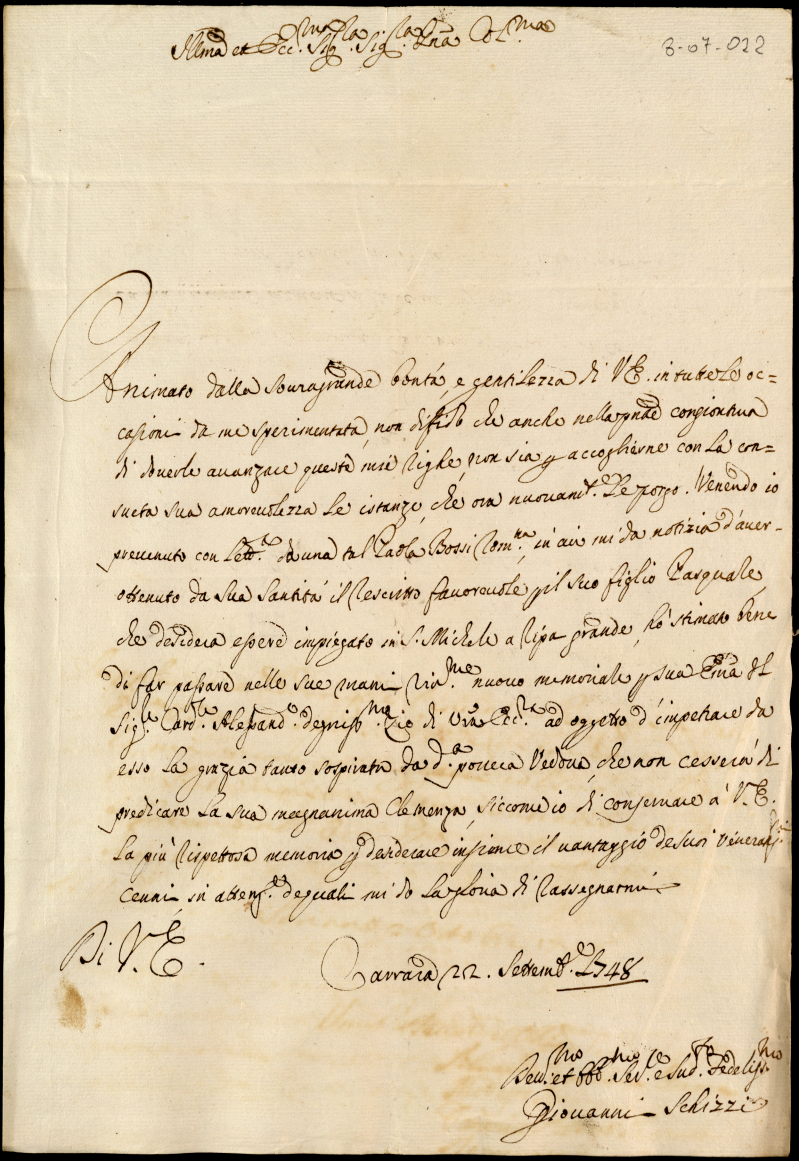 Illma et Ecc.ma Sig.la Sig.la Pña Col.ma
8-07-022
Animato dalla Souragrande bontà, e gentilezza di V.E. in tutte le oc=
casioni da me sperimentata, non diffido che anche nella pñte congiontura
di douerle auanzare queste mie righe, non sia p accoglierne con la con=
sueta sua amoreuolezza le istanze, che ora nuouam.te Le porgo. Venendo io
preuenuto con Lett.a da una tal Paola Bossi Rom.na, in cui mi da notizia d'auer
ottenuto da Sua Santità il Rescritto fauoreuole p il suo figlio Pasquale,
che desidera essere impiegato in S. Michele a Ripa grande, hò stimato bene
di far passare nelle sue mani nuouo memoriale p sua Emã il
Sig.r Card.le Alessand.o degniss.mo Zio di Vra Ecc.za ad oggetto d'impetrare da
esso la grazia tanto sospirata da d.a pouera Vedoua, che non cesserà di
predicare la sua magnanima Clemenza, siccome io di conseruare à V.E.
la più rispettosa memoria, e desiderare insieme il uantaggio de suoi Venerat.mi
Cenni, in attenz.e de quali mi do la gloria di rassegnarmi
Di V.E.
Carrara 22. Settemb.e 1748
Deu.mo et Obb.mo Ser.e e Sud.to Fedeliss.mo
Giouanni Schizzi